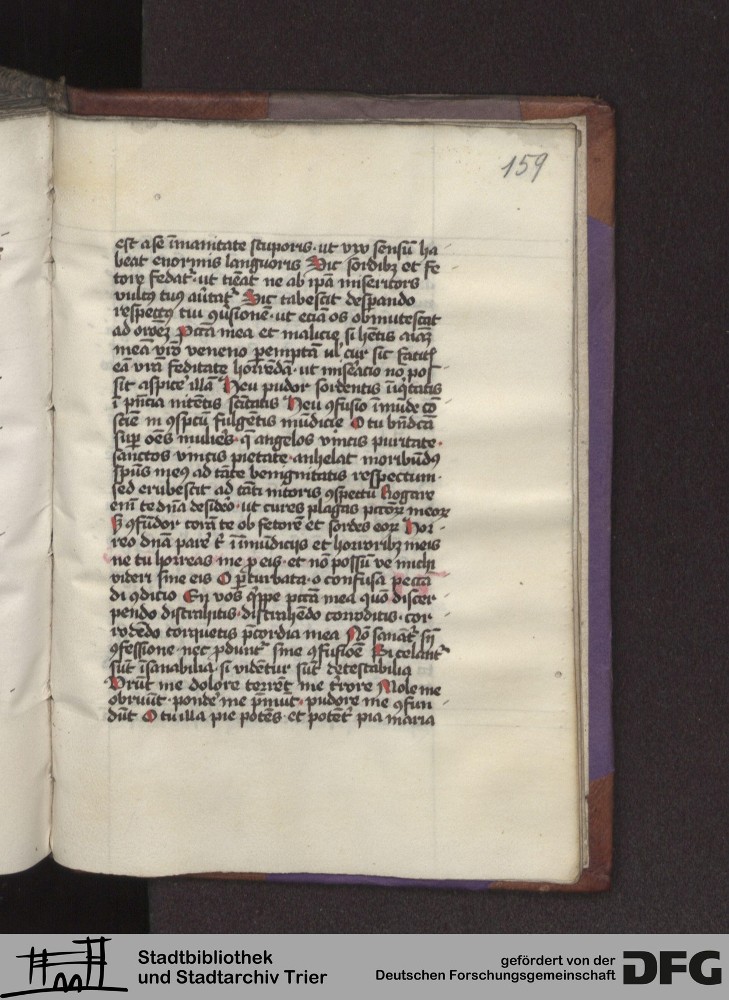 159
est a se īmanitate stuporis · ut vix sensū ha
beat enormis languoris Sic sordibꝫ et fe
tore fedat᷑ · ut timeat ne ab ipā misericors
vultꝰ tuꝰ au̅tat᷑ Sic tabescit despando
respectꝰ tui ꝯu̅sionē · ut eciā os obmutescat
ad orādū Pctā mea et malicie si hētis aīaꝫ
meā vr̄o veneno pemptā cur sic facitis
eā vrā feditate horrēdā · ut miseracio nō pos
sit aspice illā Heu pudor sordentis iniqͥtatis
ī pn̄cia nitētis scītatis Heu ꝯfusio īmūde cō
sciē in ꝯspectū fulgētis mūdicie O tu bn̄dcā
suꝑ oēs mulieꝝ · q̄ angelos vincis puritate ·
sanctos vincis pietate · anhelat moribūdꝰ
spūs meꝰ ad tāte benignitatis respectum ·
sed erubescit ad tāti nitoris ꝯspectū Rogare
eni̅ te dn̄a desideo · ut cures plagas pctōꝝ meoꝝ
ꝯfūdor corā te ob fetorē et sordes eoꝝ Hor
reo dn̄a parē t᷑ ī īmūdicijs et horroribꝫ meis
ne tu horreas me ꝓ eis · et nō possū ve michi
videri sine eis O ꝑturbata · o confusa pecca
di ꝯdicio En vos qͥppe pctā mea quō discer
pendo distrahitis · distrahēdo corroditis · cor
rodēdo torquetis p̄cordia mea Nō sanāt᷑ sn̄
ꝯfessione · nec ꝓdunt᷑ sine ꝯfusiōe Si celant᷑
sūt īsanabilia · si vidēntur sūt detestabilia
Urūt me dolore terrēt me timore Mole me
obruūt · pōdere me p̄mūt · pudore me ꝯfun
dūt O tu illa pie potēs · et potēt᷑ pia maria
Stadtbibliothek
und Stadtarchiv Trier
gefördert von der
Deutschen Forschungsgemeinschaft
DFG